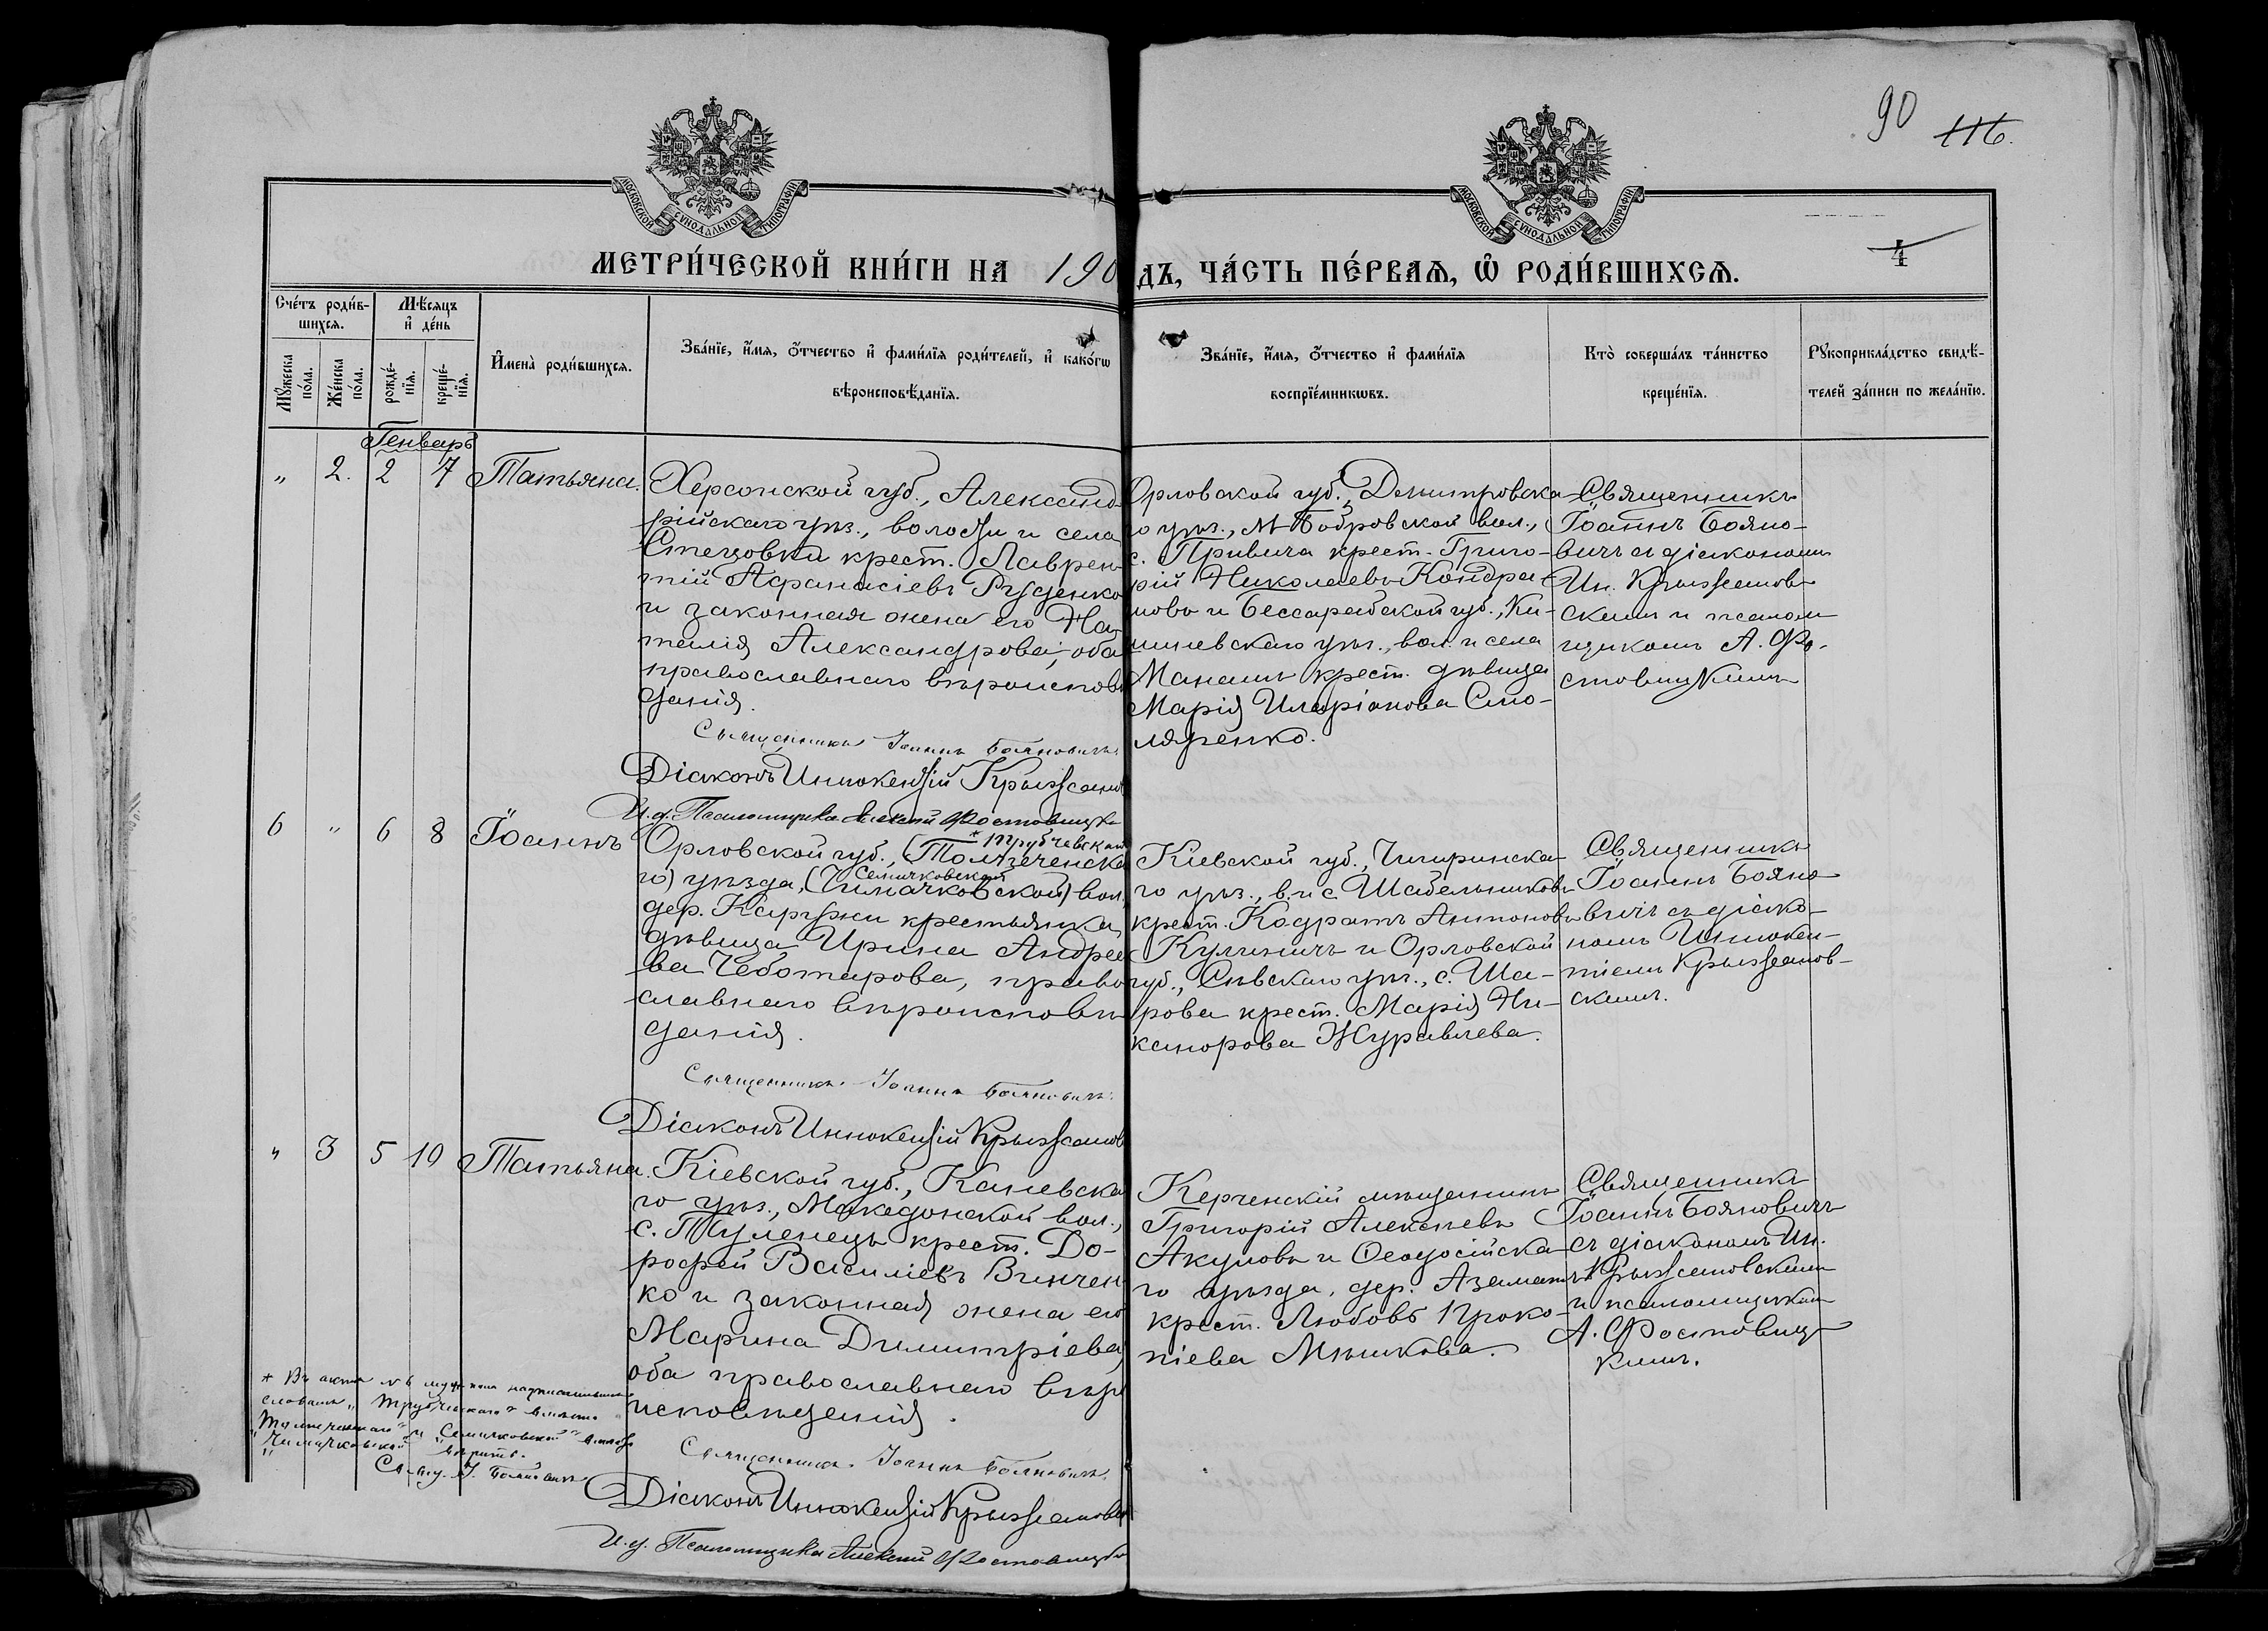 90
116.
МОСКОВСКОЙ СѴНОДАЛЬНОЙ ТИПОГРАФІИ
МОСКОВСКОЙ СѴНОДАЛЬНОЙ ТИПОГРАФІИ
4
МЕТРИ́ЧЕСКОЙ КНИ́ГИ НА 190
ДЪ, ЧА́СТЬ ПЕ́РВАѦ, Ѡ РОДИ́ВШИХСѦ.
Сче́тъ роди́в-
шихсѧ.
Мꙋ́жеска по́ла.
Же́нска по́ла.
Мѣ́сяцъ
и҆ де́нь
рожде́-
нїѧ.
креще́-
нїѧ.
И҆мена̀ роди́вшихсѧ.
Зва́нїе, и҆́мѧ, о҆́тчество и҆ фами́лїѧ роди́телей, и҆ како́гѡ
вѣроисповѣ́данїѧ.
Зва́нїе, и҆́мѧ, о҆́тчество и҆ фами́лїѧ
воспрїе́мникѡвъ.
Кто̀ соверша́лъ та́инство
креще́нїѧ.
Рꙋкоприкла́дство свидѣ́-
телей за́писи по жела́нїю.
Генварь
" 2. 2 7 Татьяна.
Херсонской губ., Александ-
рійскаго уѣз., волости и села
Стецовки крест. Лаврен-
тій Афанасіевъ Руденко
и законная жена его На-
талія Александрова, оба
православнаго вѣроисповѣ
данія.
Священникъ Іоаннъ Бояновичъ.
Діаконъ Иннокентій Крыжанов
И.д. Псаломщика Алексій Ростовицк
Орловской губ., Дмитровска-
го уѣз., Бобровской вол.,
с. Привича крест. Григо-
рій Николаевъ Кондра-
шовъ и Бессарабской губ., Ки-
шиневскаго уѣз., вол. и села
Манашъ крест. дѣвица
Марія Иларіонова Сто-
ляренко.
Священникъ
Іоаннъ Бояно-
вичъ съ діакономъ
Ин. Крыжанов-
скимъ и псалом-
щикомъ А. Ро-
стовицкимъ
6 " 6 8 Іоаннъ
* Трубчевской
Орловской губ., (Толмзеченска
Семячковской
го) уѣзда, (Чимачковской) вол.
дер. Каружи крестьянка
дѣвица Ирина Андрее
ва Чеботарова, право
славнаго вѣроисповѣ
данія.
Священникъ Іоаннъ Бояновичъ.
Діаконъ Иннокентій Крыжанов
Кіевской губ., Чигиринска-
го уѣз., в. и с. Шабельниковъ
крест. Кодратъ Антоновъ
Кулиничъ и Орловской
губ., Сѣвскаго уѣз., с. Ша-
рова крест. Марія Ни-
канорова Журавлева.
Священникъ
Іоаннъ Бояно-
вичъ съ діако-
номъ Иннокен-
тіемъ Крыжанов-
скимъ.
" 3 5 10 Татьяна.
Кіевской губ., Каневска
го уѣз., Македонской вол.,
с. Тулинецъ крест. До-
рофей Василіевъ Винчен
ко и законная жена его
Марина Димитріева,
оба православнаго вѣро
исповѣданія.
Священникъ Іоаннъ Бояновичъ.
Діаконъ Иннокентій Крыжановс
И.д. Псаломщика Алексій Ростовицк
Керченскій мѣщанинъ
Григорій Алексѣевъ
Акуловъ и Ѳеодосійска-
го уѣзда, дер. Азаматъ
крест. Любовь Проко-
піева Мѣшкова.
Священникъ
Іоаннъ Бояновичъ
съ діакономъ Ин.
Крыжановскимъ
и псаломщикомъ
А. Ростовиц-
кимъ.
* Въ актѣ № 6 муж. пола надписаннымъ
словамъ "Трубчевскаго" вмѣсто
и "Семячковской" вмѣсто
"Чимачковской" вѣрить.
Свящ. І. Бояновичъ